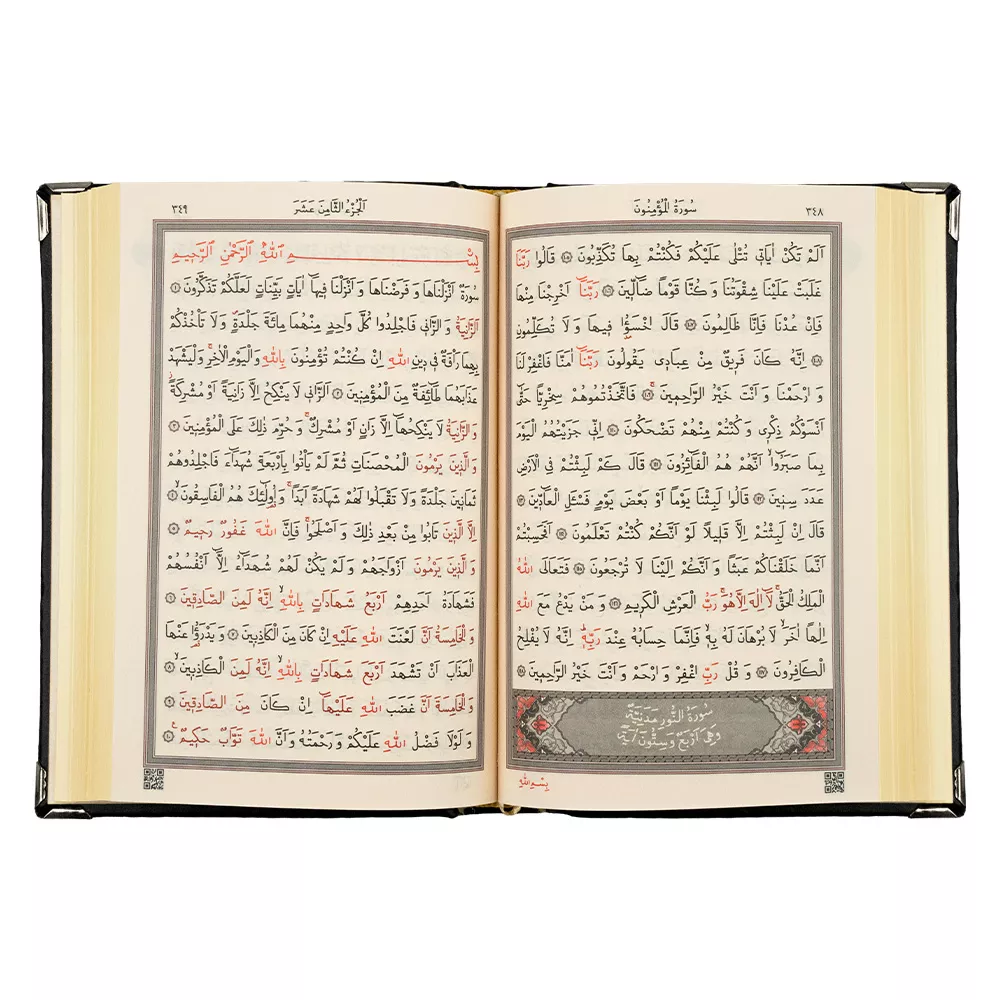 سُورَةُ الْمُؤْمِنُونَ ٣٤٨
اَلَمْ تَكُنْ اٰيَاتٖي تُتْلٰى عَلَيْكُمْ فَكُنْتُمْ بِهَا تُكَذِّبُونَ ١٠٥ قَالُوا رَبَّنَا
غَلَبَتْ عَلَيْنَا شِقْوَتُنَا وَكُنَّا قَوْمًا ضَٓالّٖينَ ١٠٦ رَبَّنَٓا اَخْرِجْنَا مِنْهَا
فَاِنْ عُدْنَا فَاِنَّا ظَالِمُونَ ١٠٧ قَالَ اخْسَؤُ۫ا فٖيهَا وَلَا تُكَلِّمُونِ
١٠٨ اِنَّهُ كَانَ فَرٖيقٌ مِنْ عِبَادٖي يَقُولُونَ رَبَّنَٓا اٰمَنَّا فَاغْفِرْ لَنَا
وَارْحَمْنَا وَاَنْتَ خَيْرُ الرَّاحِمٖينَ ١٠٩ فَاتَّخَذْتُمُوهُمْ سِخْرِيًّا حَتّٰٓى
اَنْسَوْكُمْ ذِكْرٖي وَكُنْتُمْ مِنْهُمْ تَضْحَكُونَ ١١٠ اِنّٖي جَزَيْتُهُمُ الْيَوْمَ
بِمَا صَبَرُٓوا اَنَّهُمْ هُمُ الْفَٓائِزُونَ ١١١ قَالَ كَمْ لَبِثْتُمْ فِي الْاَرْضِ
عَدَدَ سِنٖينَ ١١٢ قَالُوا لَبِثْنَا يَوْمًا اَوْ بَعْضَ يَوْمٍ فَسْـَٔلِ الْعَٓادّٖينَ ١١٣
قَالَ اِنْ لَبِثْتُمْ اِلَّا قَلٖيلًا لَوْ اَنَّكُمْ كُنْتُمْ تَعْلَمُونَ ١١٤ اَفَحَسِبْتُمْ
اَنَّمَا خَلَقْنَاكُمْ عَبَثًا وَاَنَّكُمْ اِلَيْنَا لَا تُرْجَعُونَ ١١٥ فَتَعَالَى اللّٰهُ
الْمَلِكُ الْحَقُّ لَٓا اِلٰهَ اِلَّا هُوَ رَبُّ الْعَرْشِ الْكَرٖيمِ ١١٦ وَمَنْ يَدْعُ مَعَ اللّٰهِ
اِلٰهًا اٰخَرَ لَا بُرْهَانَ لَهُ بِهٖ فَاِنَّمَا حِسَابُهُ عِنْدَ رَبِّهٖ اِنَّهُ لَا يُفْلِحُ
الْكَافِرُونَ ١١٧ وَقُلْ رَبِّ اغْفِرْ وَارْحَمْ وَاَنْتَ خَيْرُ الرَّاحِمٖينَ ١١٨
سُورَةُ النُّورِ مَدَنِيَّةٌ
وَهِيَ اَرْبَعٌ وَسِتُّونَ اٰيَةً
بِسْمِ اللّٰهِ
اَلْجُزْءُ الثَّامِنَ عَشَرَ ٣٤٩
بِسْمِ اللّٰهِ الرَّحْمٰنِ الرَّحٖيمِ
سُورَةٌ اَنْزَلْنَاهَا وَفَرَضْنَاهَا وَاَنْزَلْنَا فٖيهَٓا اٰيَاتٍ بَيِّنَاتٍ لَعَلَّكُمْ تَذَكَّرُونَ ١
اَلزَّانِيَةُ وَالزَّانٖي فَاجْلِدُوا كُلَّ وَاحِدٍ مِنْهُمَا مِائَةَ جَلْدَةٍ وَلَا تَأْخُذْكُمْ
بِهِمَا رَأْفَةٌ فٖي دٖينِ اللّٰهِ اِنْ كُنْتُمْ تُؤْمِنُونَ بِاللّٰهِ وَالْيَوْمِ الْاٰخِرِ وَلْيَشْهَدْ
عَذَابَهُمَا طَٓائِفَةٌ مِنَ الْمُؤْمِنٖينَ ٢ اَلزَّانٖي لَا يَنْكِحُ اِلَّا زَانِيَةً اَوْ مُشْرِكَةً
وَالزَّانِيَةُ لَا يَنْكِحُهَٓا اِلَّا زَانٍ اَوْ مُشْرِكٌ وَحُرِّمَ ذٰلِكَ عَلَى الْمُؤْمِنٖينَ ٣
وَالَّذٖينَ يَرْمُونَ الْمُحْصَنَاتِ ثُمَّ لَمْ يَأْتُوا بِاَرْبَعَةِ شُهَدَٓاءَ فَاجْلِدُوهُمْ
ثَمَانٖينَ جَلْدَةً وَلَا تَقْبَلُوا لَهُمْ شَهَادَةً اَبَدًا وَاُو۬لٰٓئِكَ هُمُ الْفَاسِقُونَ ٤
اِلَّا الَّذٖينَ تَابُوا مِنْ بَعْدِ ذٰلِكَ وَاَصْلَحُوا فَاِنَّ اللّٰهَ غَفُورٌ رَحٖيمٌ ٥
وَالَّذٖينَ يَرْمُونَ اَزْوَاجَهُمْ وَلَمْ يَكُنْ لَهُمْ شُهَدَٓاءُ اِلَّٓا اَنْفُسُهُمْ
فَشَهَادَةُ اَحَدِهِمْ اَرْبَعُ شَهَادَاتٍ بِاللّٰهِ اِنَّهُ لَمِنَ الصَّادِقٖينَ ٦
وَالْخَامِسَةُ اَنَّ لَعْنَتَ اللّٰهِ عَلَيْهِ اِنْ كَانَ مِنَ الْكَاذِبٖينَ ٧ وَيَدْرَؤُ۬ا عَنْهَا
الْعَذَابَ اَنْ تَشْهَدَ اَرْبَعَ شَهَادَاتٍ بِاللّٰهِ اِنَّهُ لَمِنَ الْكَاذِبٖينَ ٨
وَالْخَامِسَةَ اَنَّ غَضَبَ اللّٰهِ عَلَيْهَٓا اِنْ كَانَ مِنَ الصَّادِقٖينَ ٩
وَلَوْلَا فَضْلُ اللّٰهِ عَلَيْكُمْ وَرَحْمَتُهُ وَاَنَّ اللّٰهَ تَوَّابٌ حَكٖيمٌ ١٠